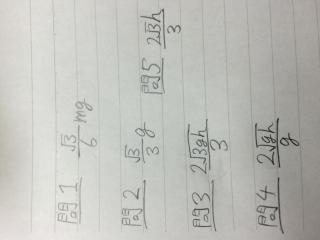 問1 √3/6 mg
問2 √3/3 g
問3 2√3gh/3
問4 2√gh/g
問5 2√3h/3